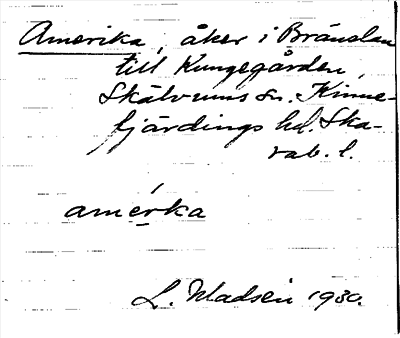 Amerika, åker i Bränslan
till Kungegården,
Skälvums sn. Kinne-
fjärdings hd. Ska-
rab. l.
amérka
L. Madsén 1930.